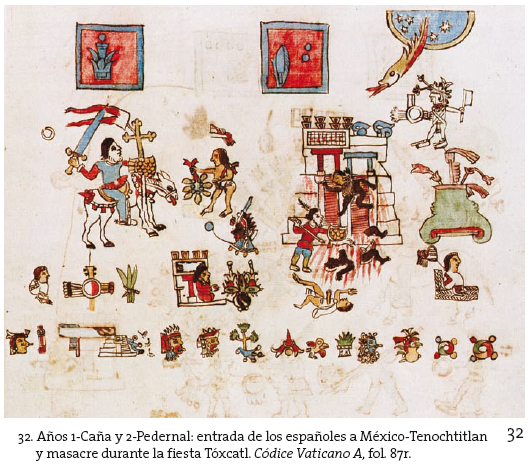 32. Años 1-Caña y 2-Pedernal: entrada de los españoles a México-Tenochtitlan
y masacre durante la fiesta Tóxcatl. Códice Vaticano A, fol. 87r.
32